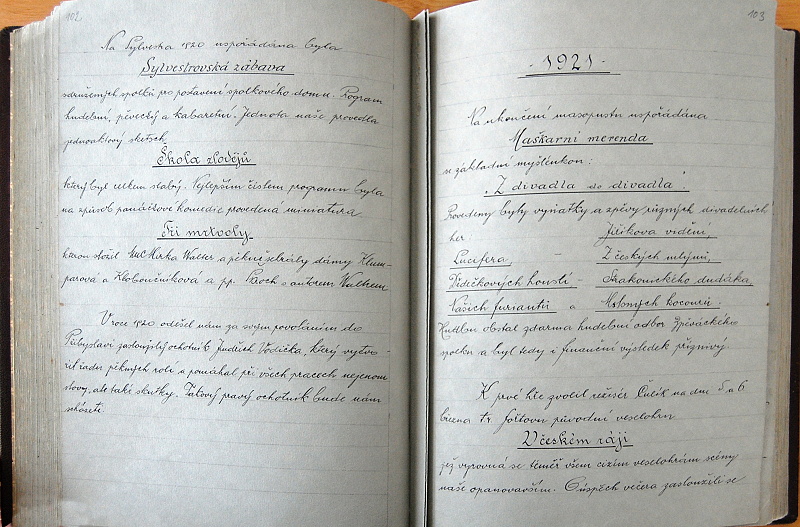 102
Na Sylvestra 1920 uspořádána byla
Sylvestrovská zábava
sdružených spolků pro postavení spolkového domu. Program
hudební, pěvecký a kabaretní. Jednota naše provedla
jednoaktový sketsch
Škola zlodějů
který byl celkem slabý. Nejlepším číslem programu byla
na způsob panákové komedie provedená miniatura
Tři mrtvoly
kterou složil Mirka Walter a pěkně sehrály dámy Klum-
parová a Kloboučníková a pp. Proch s autorem Waltrem
V roce 1920 odešel nám za svým povoláním do
Přibyslavi zasloužilý ochotník Jindřich Vodička, který vytvo-
řil řadu pěkných rolí a pomáhal při všech pracech nejenom
slovy, ale také skutky. Takový pravý ochotník bude nám
scházeti.
103
- 1921 -
Na ukončení masopustu uspořádána
Maškarní merenda
se základní myšlénkou:
"Z divadla do divadla".
Provedeny byly vyňatky a zpěvy různých divadelních
her Jiříkova vidění,
Lucifera, - Z českých mlýnů,
Paličkových houslí - Strakonického dudáka,
Našich furiantů a Mlsných kocourů.
Hudbu obstal zdarma hudební odbor Zpěváckého
spolku a byl tedy i finanční výsledek příznivý.
K prvé hře zvolil režisér Čulík na dni 5 a 6
března t.r. Šortovu původní veselohru
V českém ráji
jež vyrovná se téměř všem cizím veselohrám scény
naše opanovavším. O úspěch večera zasloužili se